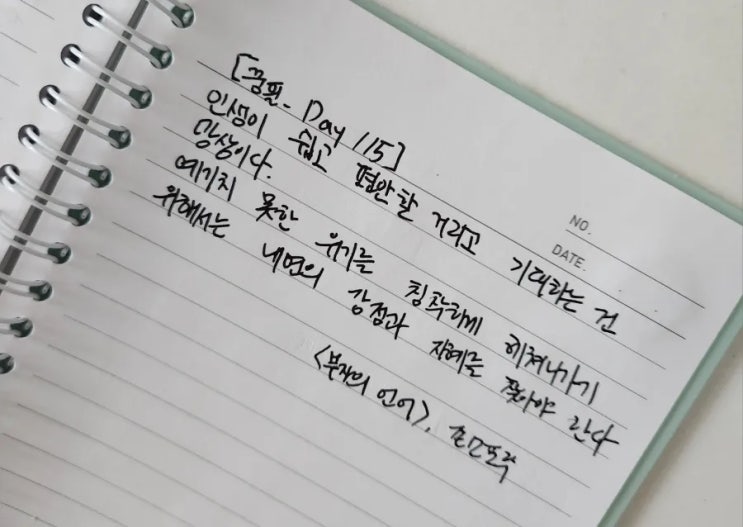 [공필- Day 115]
인생이 쉽고 평안할 거라고 기대하는 건
망상이다.
예기치 못한 위기를 침착하게 헤쳐나가기
위해서는 내면의 강점과 지혜를 찾아야 한다
<부자의 언어>, 존 소포릭
NO.
DATE.